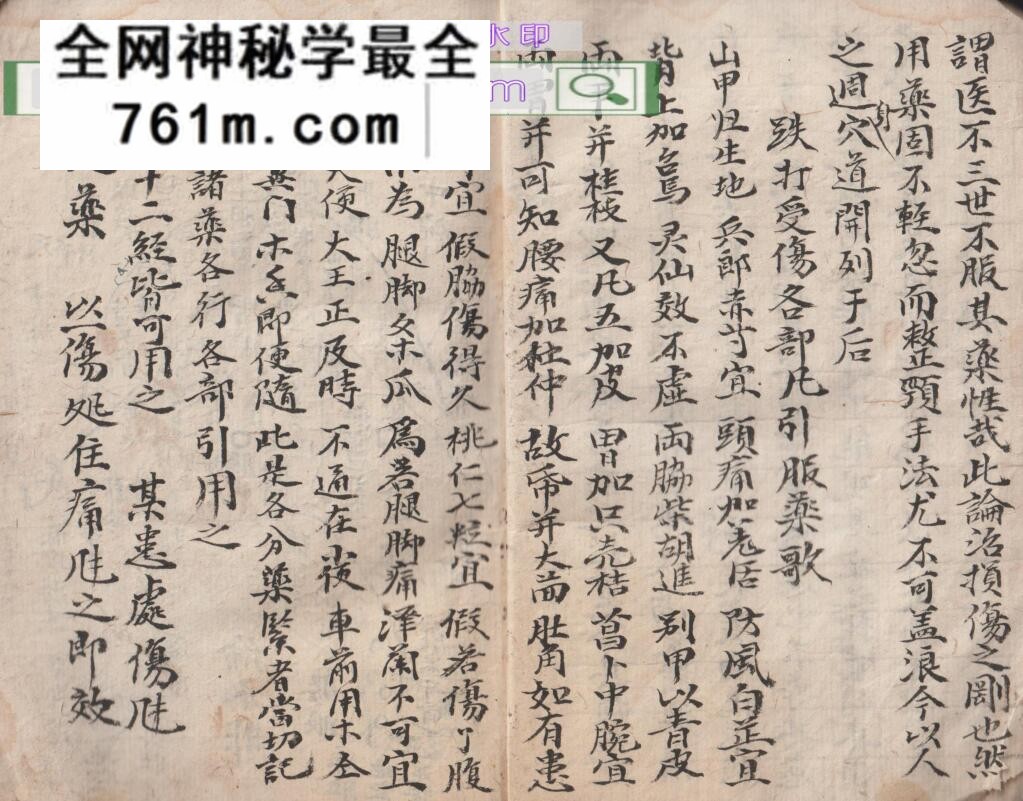 全网神秘学最全
761m.com
水印
m
謂医不三世不服其藥性哉此論治損傷之剛也然
用藥固不輕忽而整顎手法尤不可盖浪今以人
之週身穴道開列于后
跌打受傷各部凡引服藥歌
山甲归生地 兵郎赤芍宜 頭痛加羌活 防風白芷宜
背上加烏 灵仙效不虛 両脇柴胡進 别甲以青皮
両手并桂枝 又凡五加皮 胃加只壳桔 菖卜中腕宜
并可知腰痛加杜仲 故帋并大茴 肚角如有患
宜 假脇傷得久 桃仁七粒宜 假若傷了腹
為 腿脚久木瓜 為若腿脚痛 澤蘭不可宜
便 大王正及時 不通在後 車前用木
無门木香即便隨 此是各分藥緊者當切記
諸藥各行各部引用之
十二經皆可用之 某患處傷
藥 以傷処住痛 之即效